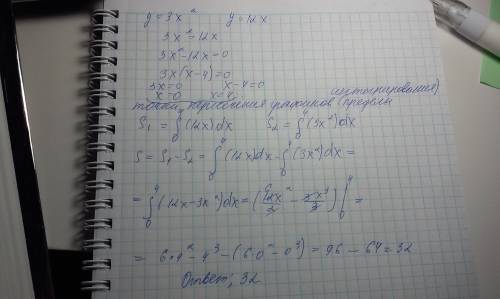 y = 3x² y = 12x
3x² = 12x
3x² - 12x = 0
3x(x - 4) = 0
3x = 0 x - 4 = 0
x = 0 x = 4
точки пересечения графиков (пределы интегрирования)
S₁ = ∫₀⁴ (12x) dx S₂ = ∫₀⁴ (3x²) dx
S = S₁ - S₂ = ∫₀⁴ (12x) dx - ∫₀⁴ (3x²) dx =
= ∫₀⁴ (12x - 3x²) dx = (12x²/2 - 3x³/3) |₀⁴ =
= 6·4² - 4³ - (6·0² - 0³) = 96 - 64 = 32
Ответ: 32